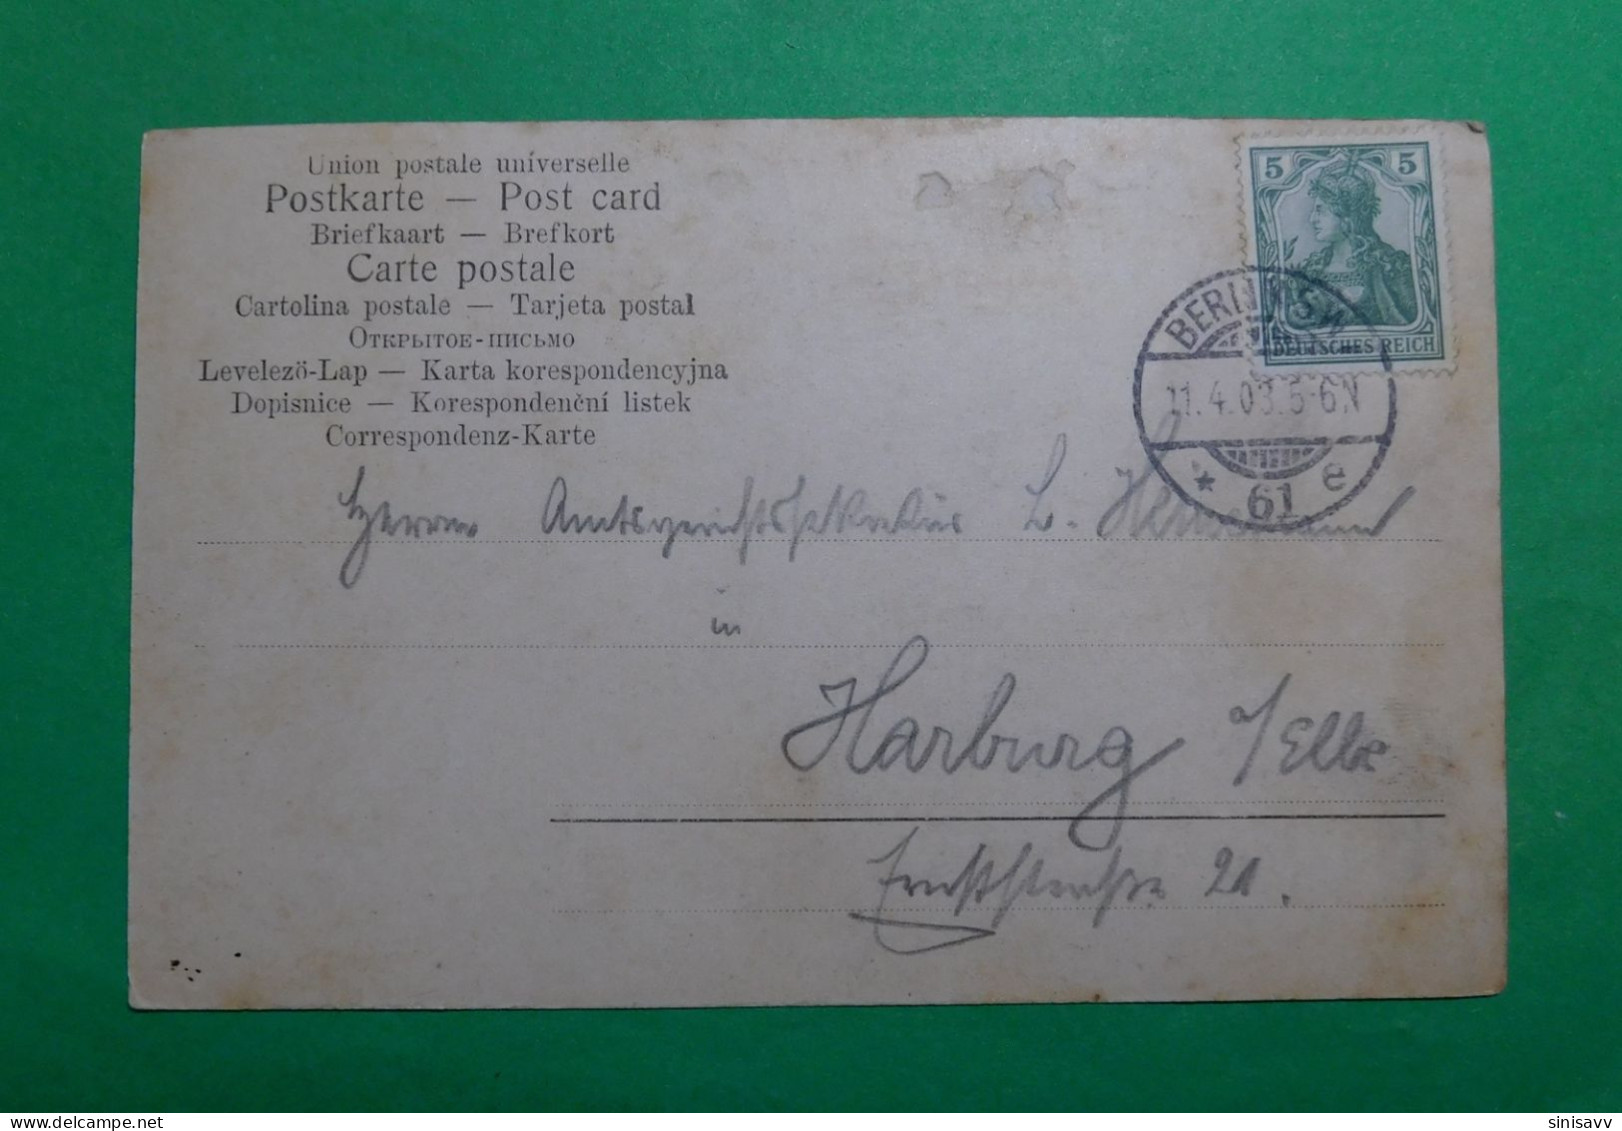 Union postale universelle
Postkarte — Post card
Briefkaart — Brefkort
Carte postale
Cartolina postale — Tarjeta postal
Открытое-письмо
Levelezö-Lap — Karta korespondencyjna
Dopisnice — Korespondenční listek
Correspondenz-Karte
5 5
DEUTSCHES REICH
BERLIN S.W.
11.4.03.5-6N
* 61 e
Herrn Amtsgerichtssekretär
in
Harburg a/Elbe
Ernststraße 21.
sinisavv